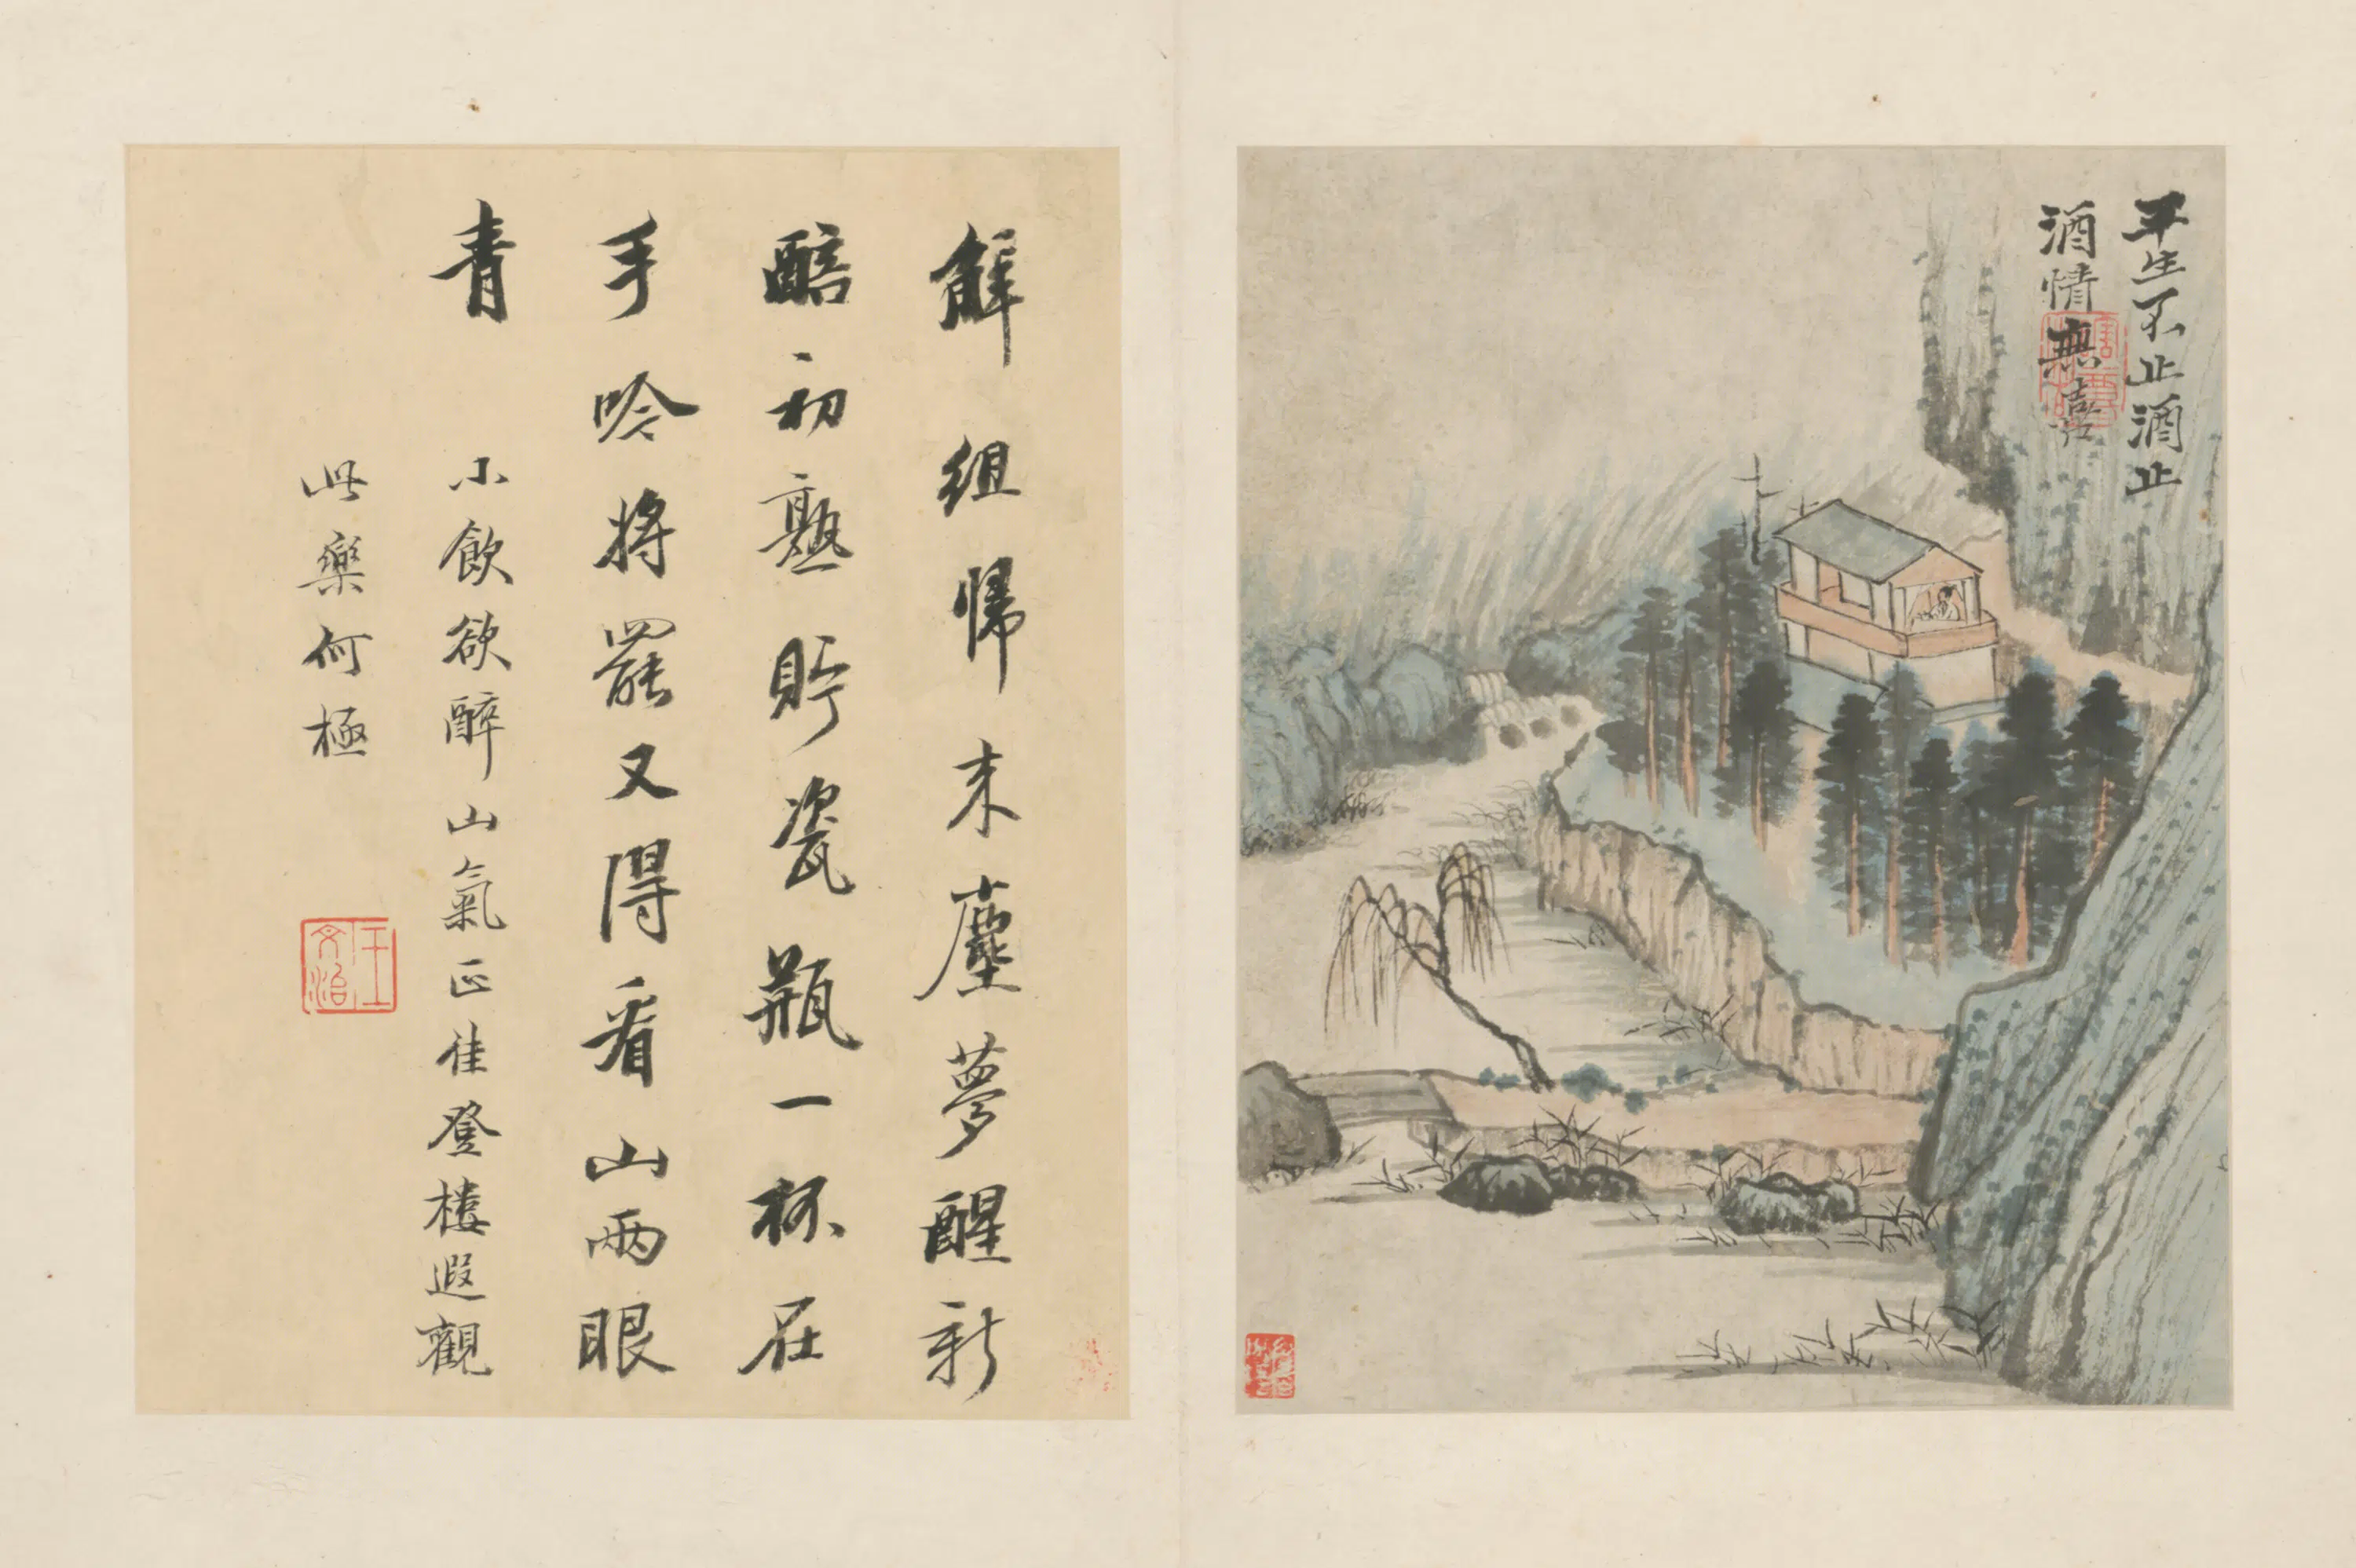 平生不止酒止
酒情無喜
解組帰来塵夢醒新
醅初熟貯瓷瓶一杯在
手吟將罷又得看山兩眼
青
小飲欲醉山氣正佳登樓遐觀
此樂何極
王文治